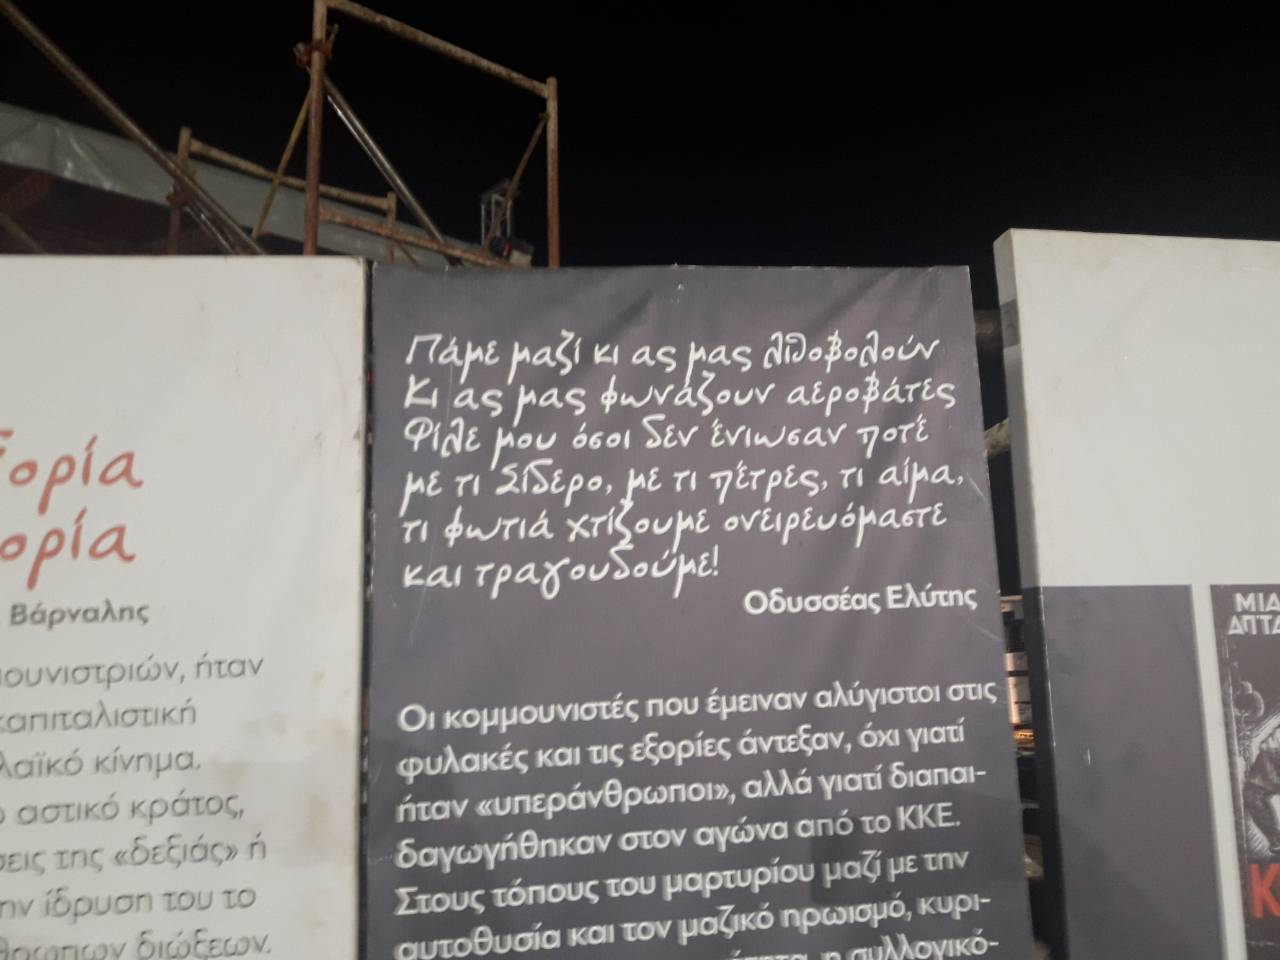 ορία
ορία
Βάρναλης
μουνιστριών, ήταν
καπιταλιστική
λαϊκό κίνημα.
αστικό κράτος,
σεις της «δεξιάς» ή
ην ίδρυση του το
διώξεων.
Πάμε μαζί κι ας μας λιθοβολούν
Κι ας μας φωνάζουν αεροβάτες
Φίλε μου όσοι δεν ένιωσαν ποτέ
με τι Σίδερο, με τι πέτρες, τι αίμα,
τι φωτιά χτίζουμε ονειρευόμαστε
και τραγουδούμε!
Οδυσσέας Ελύτης
Οι κομμουνιστές που έμειναν αλύγιστοι στις
φυλακές και τις εξορίες άντεξαν, όχι γιατί
ήταν «υπεράνθρωποι», αλλά γιατί διαπαι-
δαγωγήθηκαν στον αγώνα από το ΚΚΕ.
Στους τόπους του μαρτυρίου μαζί με την
αυτοθυσία και τον μαζικό ηρωισμό, κυρι-
η συλλογικό-
ΜΙΑ
ΑΠΤΑ
Κ